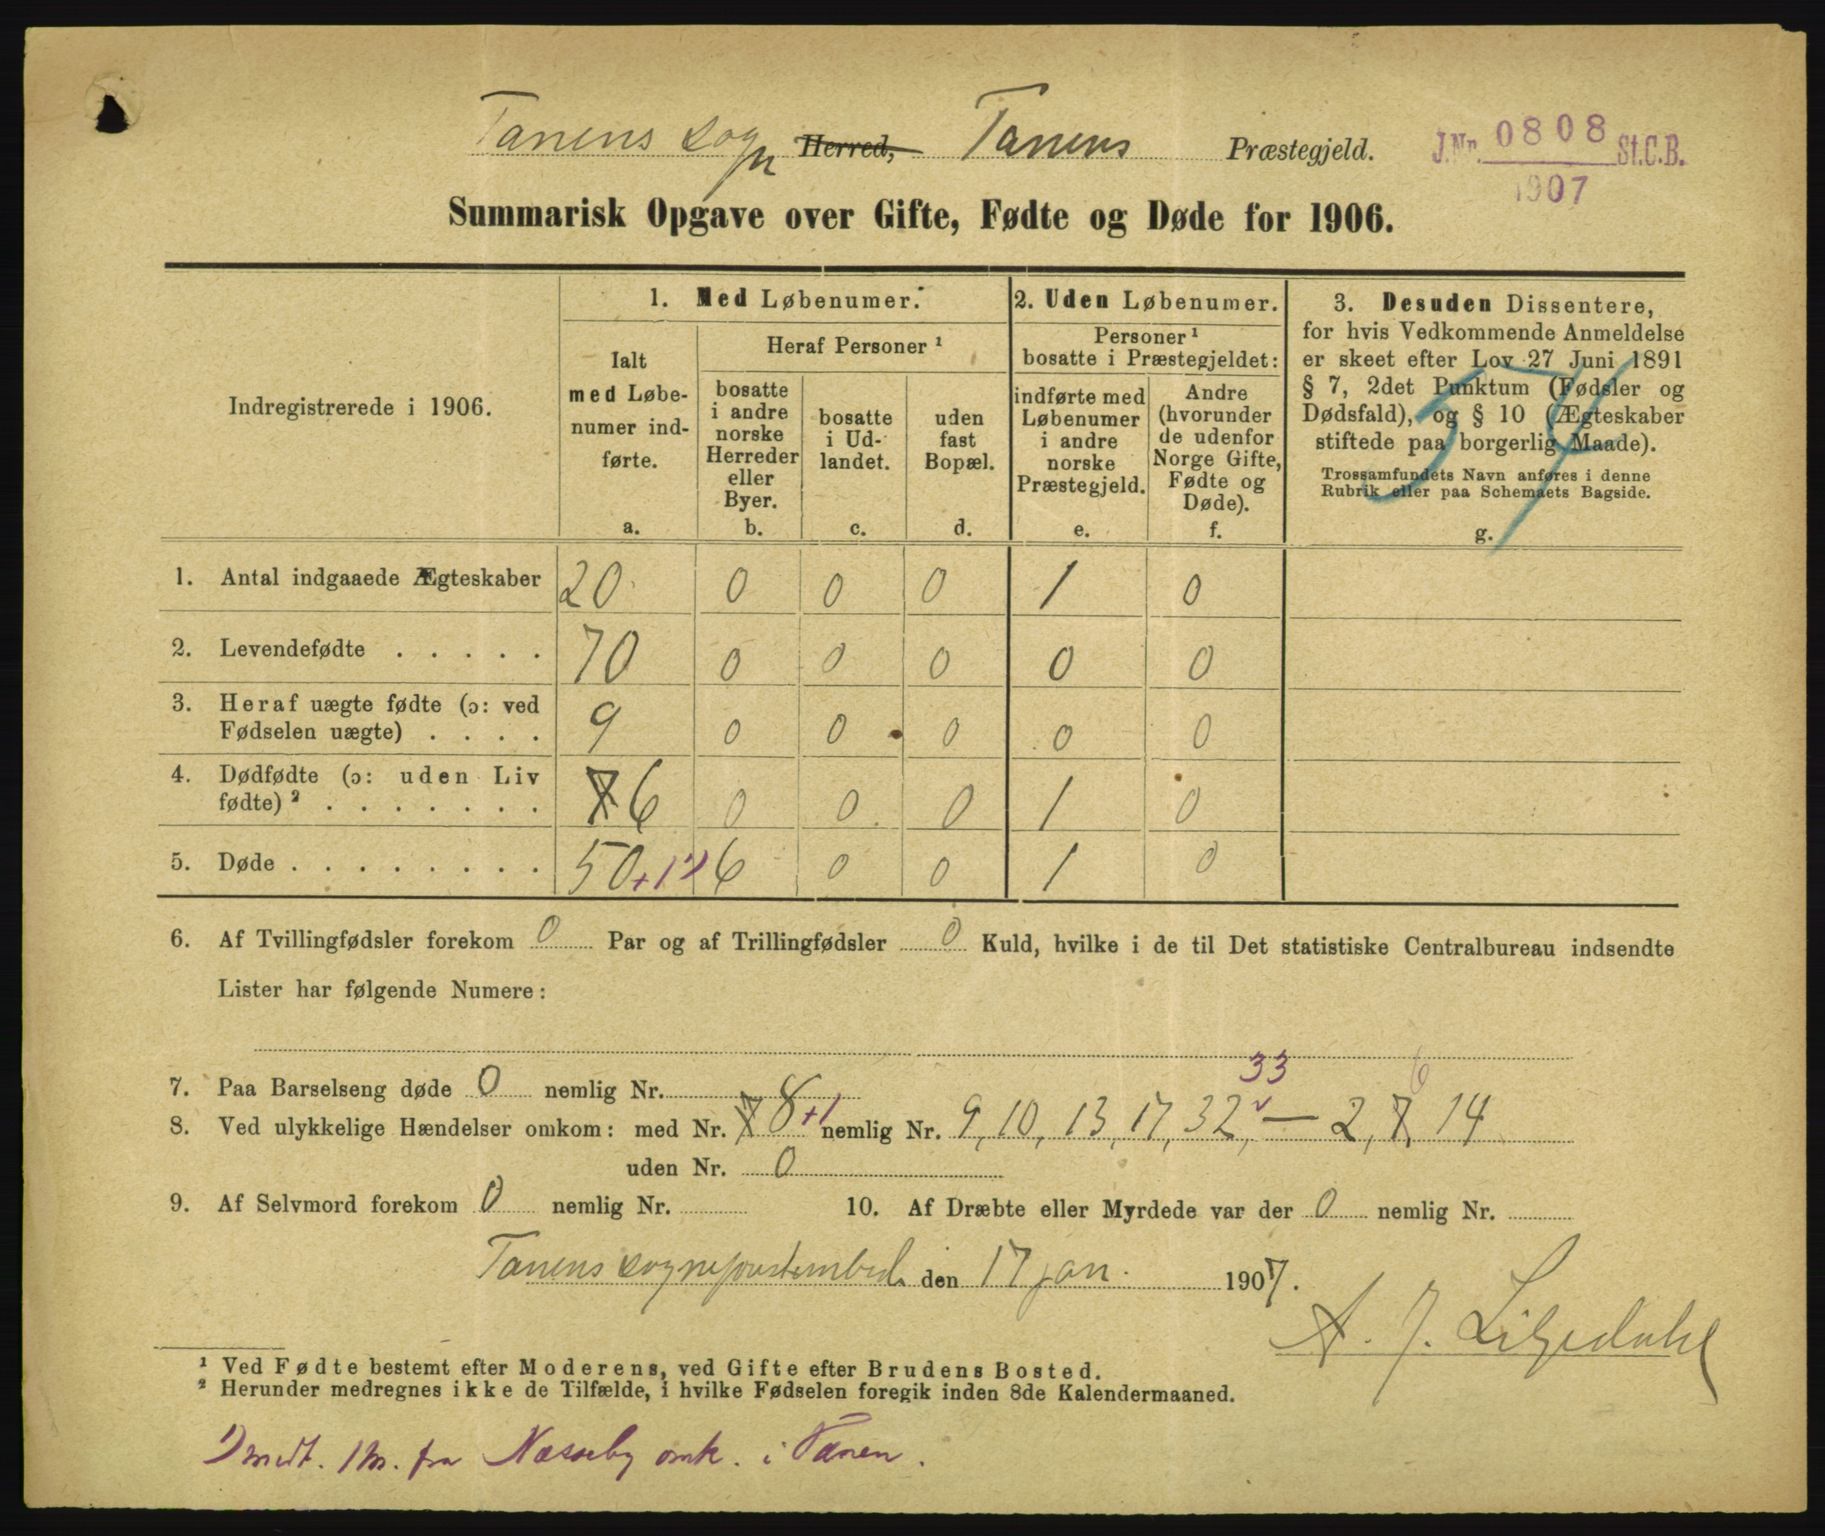 Tanens sogn Herred, Tanens Præstegjeld.
J.Nr. 0808 St.C.B.
1907
Summarisk Opgave over Gifte, Fødte og Døde for 1906.
Indregistrerede i 1906.
1. Med Løbenumer.
Ialt
med Løbe-
numer ind-
førte.
a.
Heraf Personer ¹
bosatte
i andre
norske
Herreder
eller
Byer.
b.
bosatte
i Ud-
landet.
c.
uden
fast
Bopæl.
d.
2. Uden Løbenumer.
Personer ¹
bosatte i Præstegjeldet:
indførte med
Løbenumer
i andre
norske
Præstegjeld.
e.
Andre
(hvorunder
de udenfor
Norge Gifte,
Fødte og
Døde).
f.
3. Desuden Dissentere,
for hvis Vedkommende Anmeldelse
er skeet efter Lov 27 Juni 1891
§ 7, 2det Punktum (Fødsler og
Dødsfald), og § 10 (Ægteskaber
stiftede paa borgerlig Maade).
Trossamfundets Navn anføres i denne
Rubrik eller paa Schemaets Bagside.
g.
57
1. Antal indgaaede Ægteskaber 20 0 0 0 1 0
2. Levendefødte . . . . . 70 0 0 0 0 0
3. Heraf uægte fødte (ɔ: ved
Fødselen uægte) . . . . 9 0 0 0 0 0
4. Dødfødte (ɔ: uden Liv
fødte) ² . . . . . . . 7 6 0 0 0 1 0
5. Døde . . . . . . . . 50 +1 ¹⁾ 6 0 0 1 0
6. Af Tvillingfødsler forekom 0 Par og af Trillingfødsler 0 Kuld, hvilke i de til Det statistiske Centralbureau indsendte
Lister har følgende Numere:
7. Paa Barselseng døde 0 nemlig Nr.
33 6
8. Ved ulykkelige Hændelser omkom: med Nr. 7 8 +1 nemlig Nr. 9, 10, 13, 17, 32, — 2, 7, 14
uden Nr. 0
9. Af Selvmord forekom 0 nemlig Nr. 10. Af Dræbte eller Myrdede var der 0 nemlig Nr.
Tanens sogneprestembed, den 17 jan. 1907.
A. J. Liljedahl
¹ Ved Fødte bestemt efter Moderens, ved Gifte efter Brudens Bosted.
² Herunder medregnes ikke de Tilfælde, i hvilke Fødselen foregik inden 8de Kalendermaaned.
1) medt. 1 m. fra Næsseby omk. i Tanen.